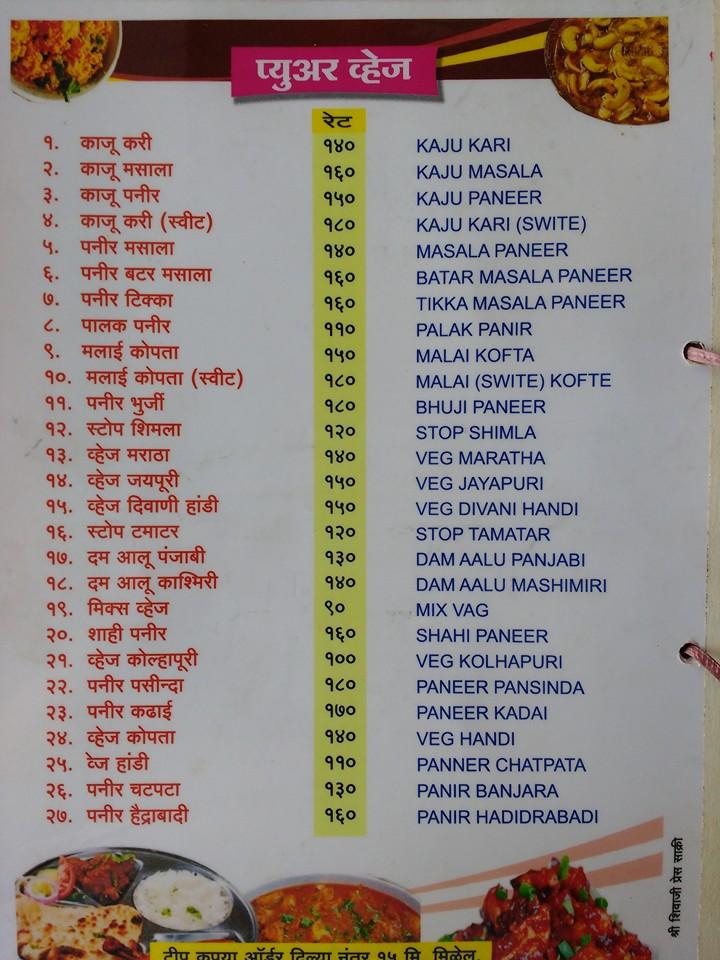 प्युअर व्हेज
रेट
१. काजू करी १४० KAJU KARI
२. काजू मसाला १६० KAJU MASALA
३. काजू पनीर १५० KAJU PANEER
४. काजू करी (स्वीट) १८० KAJU KARI (SWITE)
५. पनीर मसाला १४० MASALA PANEER
६. पनीर बटर मसाला १६० BATAR MASALA PANEER
७. पनीर टिक्का १६० TIKKA MASALA PANEER
८. पालक पनीर ११० PALAK PANIR
९. मलाई कोपता १५० MALAI KOFTA
१०. मलाई कोपता (स्वीट) १८० MALAI (SWITE) KOFTE
११. पनीर भुर्जी १८० BHUJI PANEER
१२. स्टोप शिमला १२० STOP SHIMLA
१३. व्हेज मराठा १४० VEG MARATHA
१४. व्हेज जयपूरी १५० VEG JAYAPURI
१५. व्हेज दिवाणी हांडी १५० VEG DIVANI HANDI
१६. स्टोप टमाटर १२० STOP TAMATAR
१७. दम आलू पंजाबी १३० DAM AALU PANJABI
१८. दम आलू काश्मिरी १४० DAM AALU MASHIMIRI
१९. मिक्स व्हेज ९० MIX VAG
२०. शाही पनीर १६० SHAHI PANEER
२१. व्हेज कोल्हापूरी १०० VEG KOLHAPURI
२२. पनीर पसीन्दा १८० PANEER PANSINDA
२३. पनीर कढाई १७० PANEER KADAI
२४. व्हेज कोपता १४० VEG HANDI
२५. व्हेज हांडी ११० PANNER CHATPATA
२६. पनीर चटपटा १३० PANIR BANJARA
२७. पनीर हैद्राबादी १६० PANIR HADIDRABADI
श्री शिवाजी प्रेस साक्री
टीप कृपया ऑर्डर दिल्या नंतर १५ मि. मिळेल.